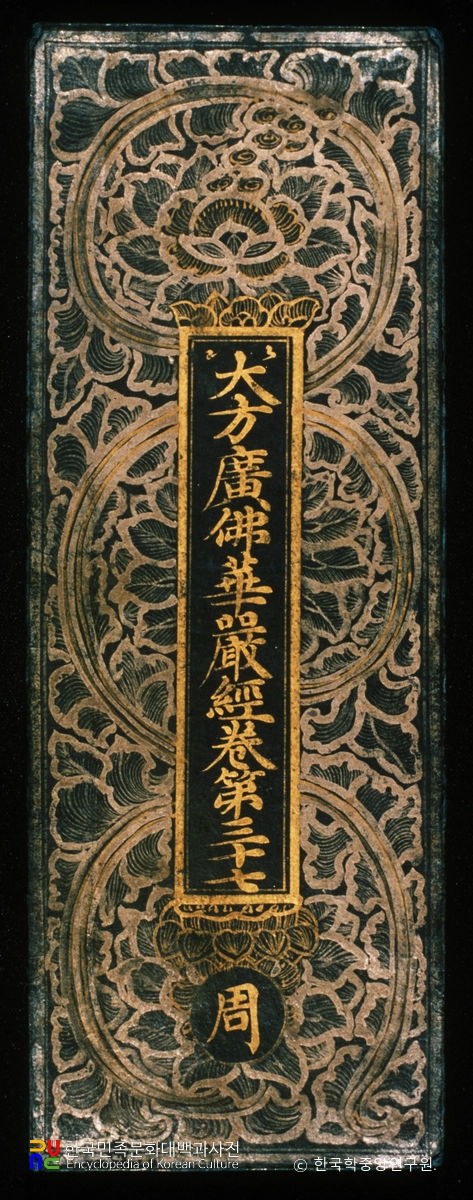 大方廣佛華嚴經卷第三十七
周
한국민족문화대백과사전
Encyclopedia of Korean Culture
© 한국학중앙연구원.